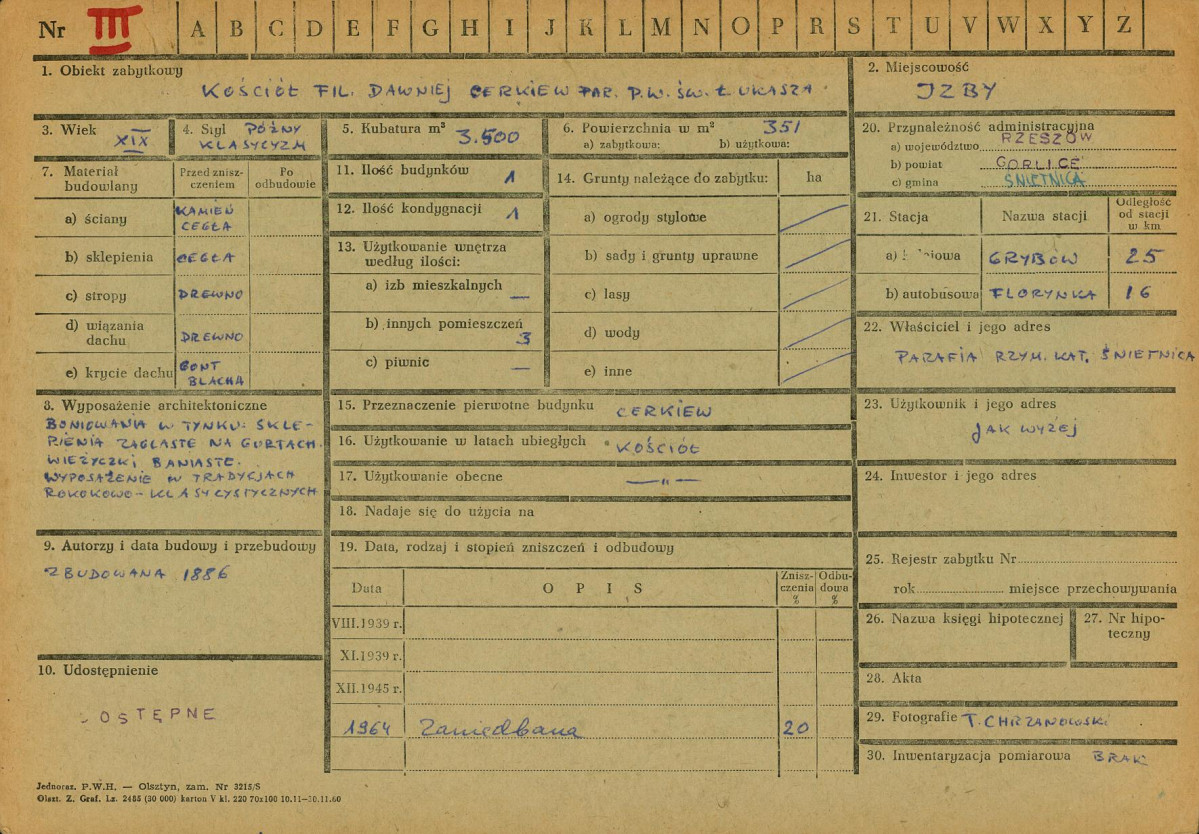 Nr III A B C D E F G H I J K L M N O P R S T U V W X Y Z
1. Obiekt zabytkowy
KOŚCIÓŁ FIL. DAWNIEJ CERKIEW PAR. P.W. ŚW. ŁUKASZA
2. Miejscowość
IZBY
3. Wiek
XIX
4. Styl PÓŹNY
KLASYCYZM
5. Kubatura m³ 3.500
6. Powierzchnia w m² 351
a) zabytkowa: b) użytkowa:
20. Przynależność administracyjna
a) województwo RZESZÓW
b) powiat GORLICE
c) gmina ŚNIETNICA
7. Materiał budowlany
Przed zniszczeniem
Po odbudowie
a) ściany KAMIEŃ
CEGŁA
b) sklepienia CEGŁA
c) stropy DREWNO
d) wiązania dachu DREWNO
e) krycie dachu GONT
BLACHA
11. Ilość budynków 1
12. Ilość kondygnacji 1
13. Użytkowanie wnętrza
według ilości:
a) izb mieszkalnych —
b) innych pomieszczeń 3
c) piwnic —
14. Grunty należące do zabytku: ha
a) ogrody stylowe
b) sady i grunty uprawne
c) lasy
d) wody
e) inne
21. Stacja Nazwa stacji Odległość
od stacji
w km
a) GRYBÓW 25
b) autobusowa FLORYNKA 16
22. Właściciel i jego adres
PARAFIA RZYM. KAT. ŚNIETNICA
8. Wyposażenie architektoniczne
BONIOWANIA W TYNKU. SKLE-
PIENIA ŻAGLASTE NA GURTACH.
WIEŻYCZKI BANIASTE.
WYPOSAŻENIE W TRADYCJACH
ROKOKOWO-KLASYCYSTYCZNYCH
15. Przeznaczenie pierwotne budynku CERKIEW
16. Użytkowanie w latach ubiegłych KOŚCIÓŁ
17. Użytkowanie obecne —"—
18. Nadaje się do użycia na
23. Użytkownik i jego adres
JAK WYŻEJ
24. Inwestor i jego adres
9. Autorzy i data budowy i przebudowy
ZBUDOWANA 1886
19. Data, rodzaj i stopień zniszczeń i odbudowy
Data O P I S Znisz-
czenia
% Odbu-
dowa
%
VIII.1939 r.
XI.1939 r.
XII.1945 r.
1964 Zaniedbana 20
25. Rejestr zabytku Nr
rok miejsce przechowywania
26. Nazwa księgi hipotecznej
27. Nr hipo-
teczny
28. Akta
29. Fotografie T. CHRZANOWSKI
30. Inwentaryzacja pomiarowa BRAK
10. Udostępnienie
DOSTĘPNE
Jednoraz. P.W.H. — Olsztyn, zam. Nr 3215/S
Olszt. Z. Graf. Lz. 2485 (30 000) karton V kl. 220 70x100 10.11—30.11.60